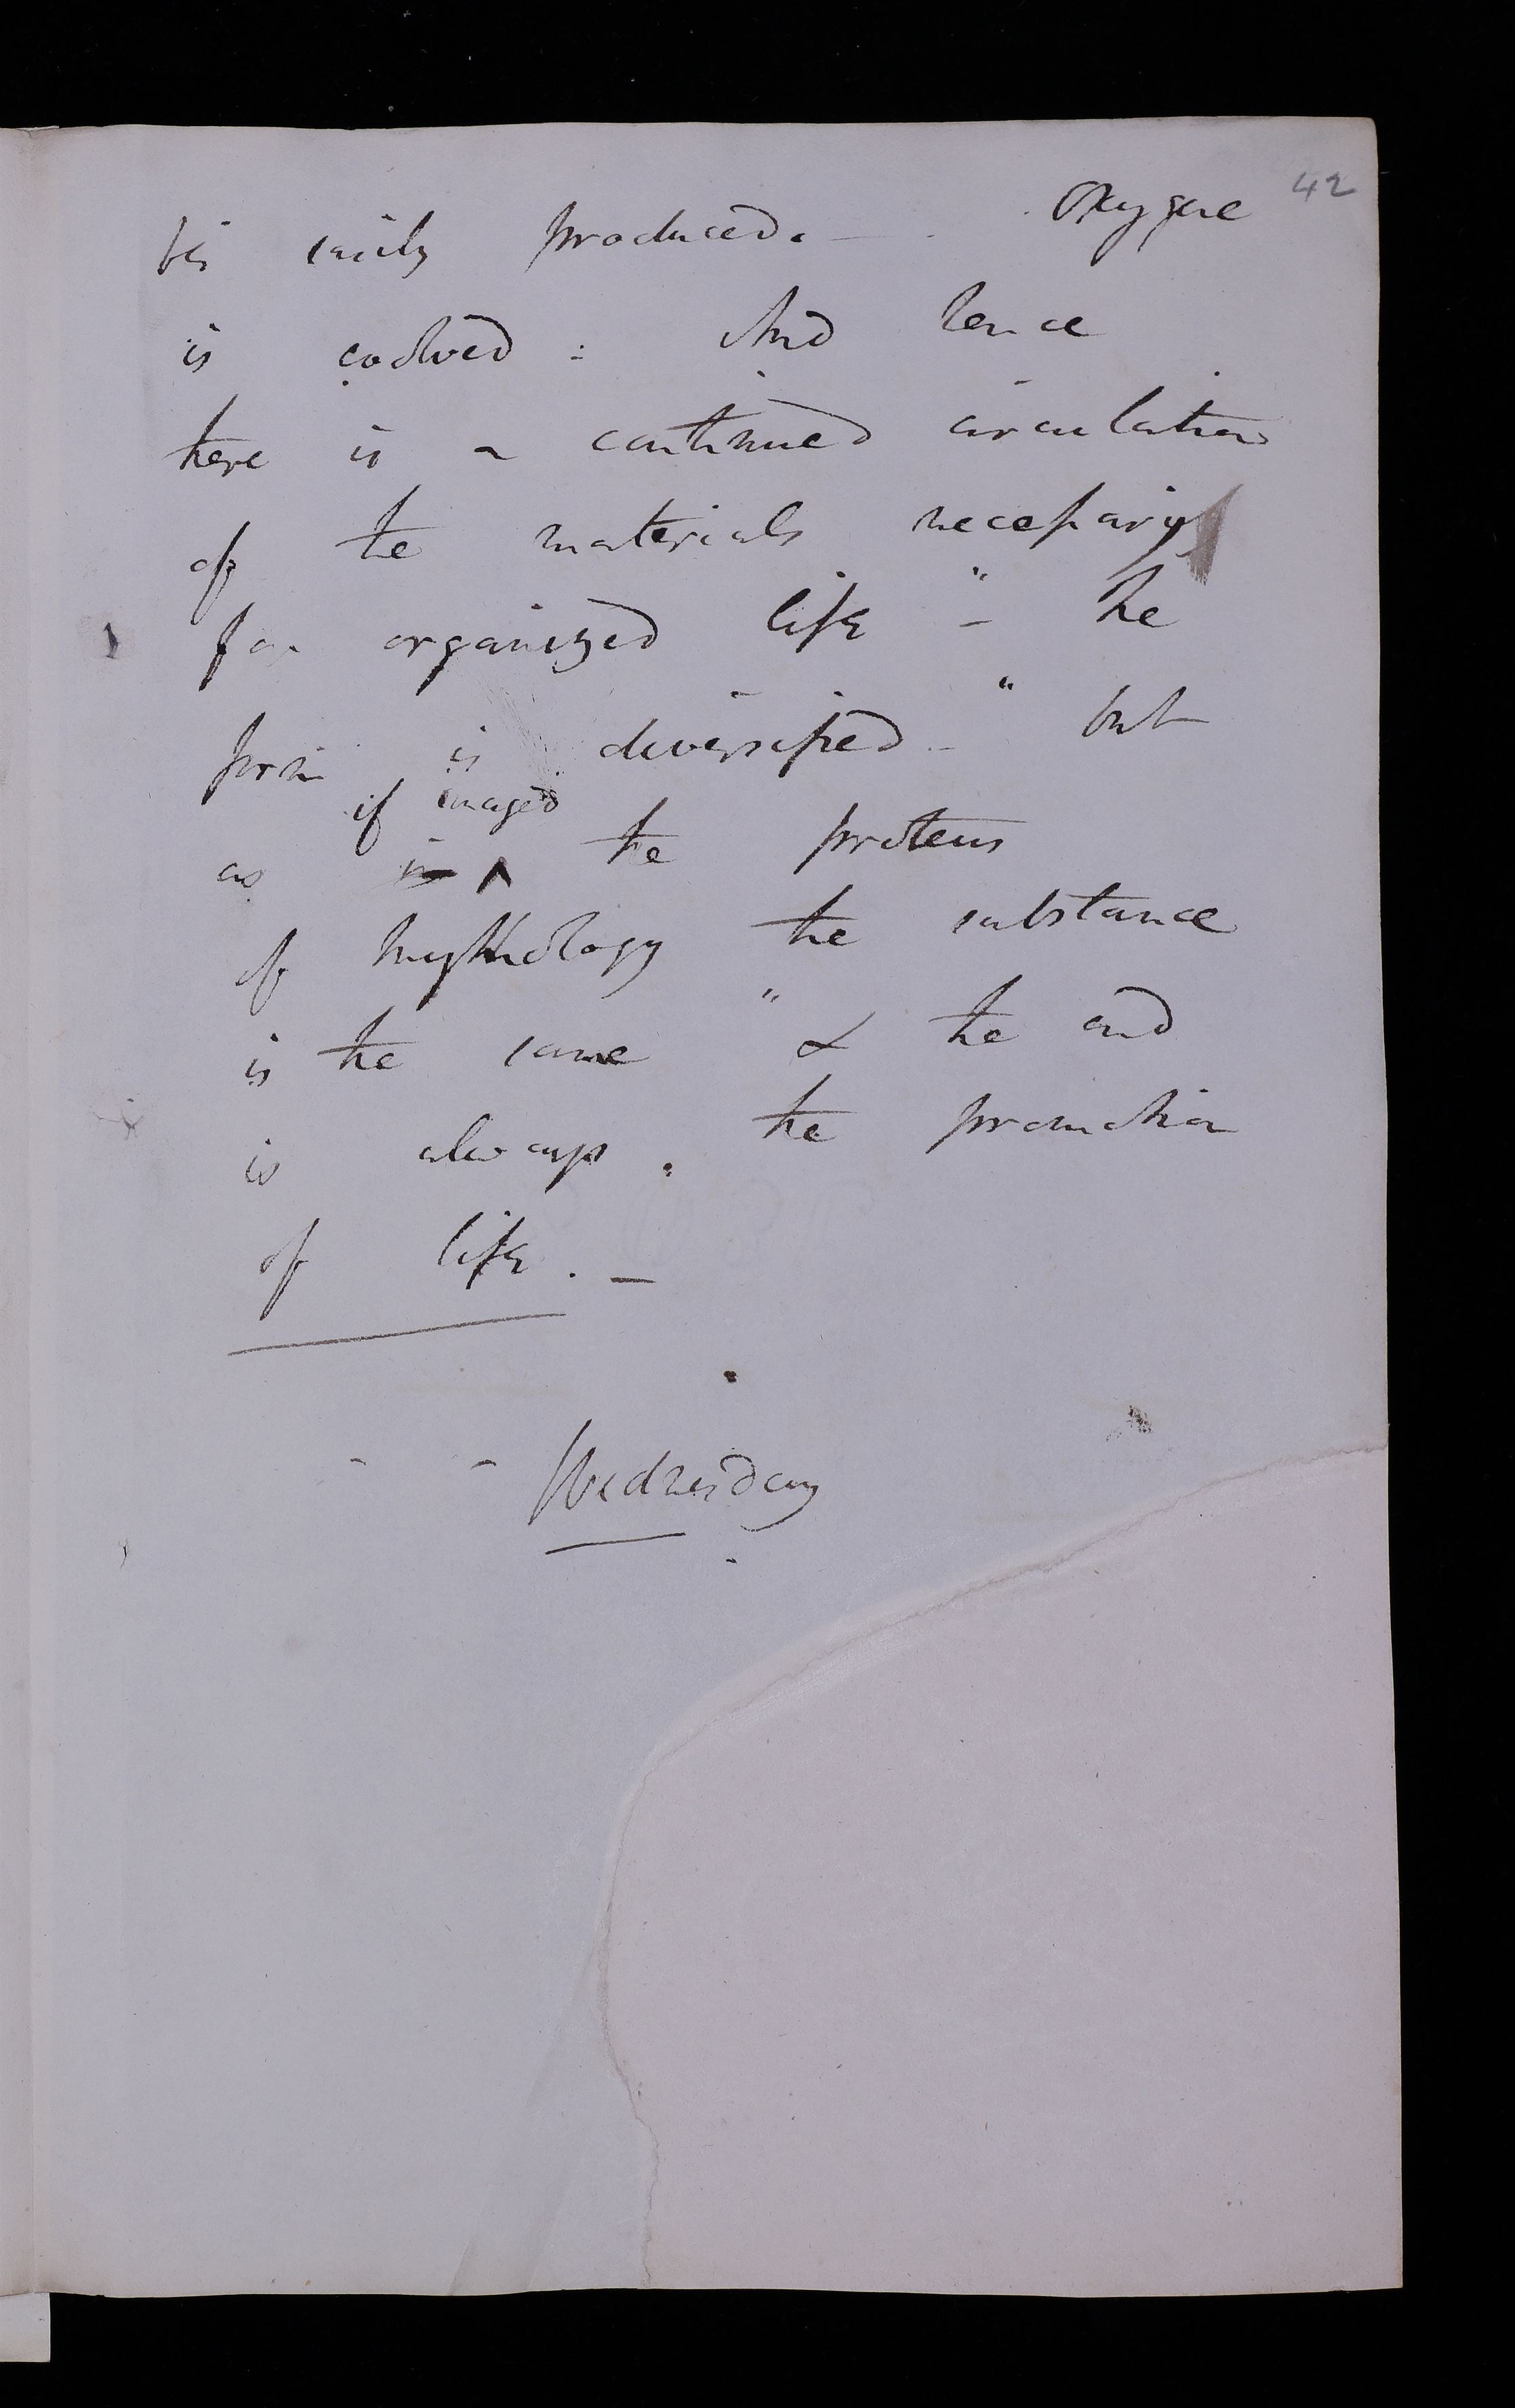 42
is easily produced. — Oxygene
is evolved : And hence
there is a continued circulation
of the materials necessary
for organized life " – the
form is diversified – " but
if imaged
as in ^ the proteus
of Mythology the substance
is the same " & the end
is always . the promotion
of life . —
Wednesday